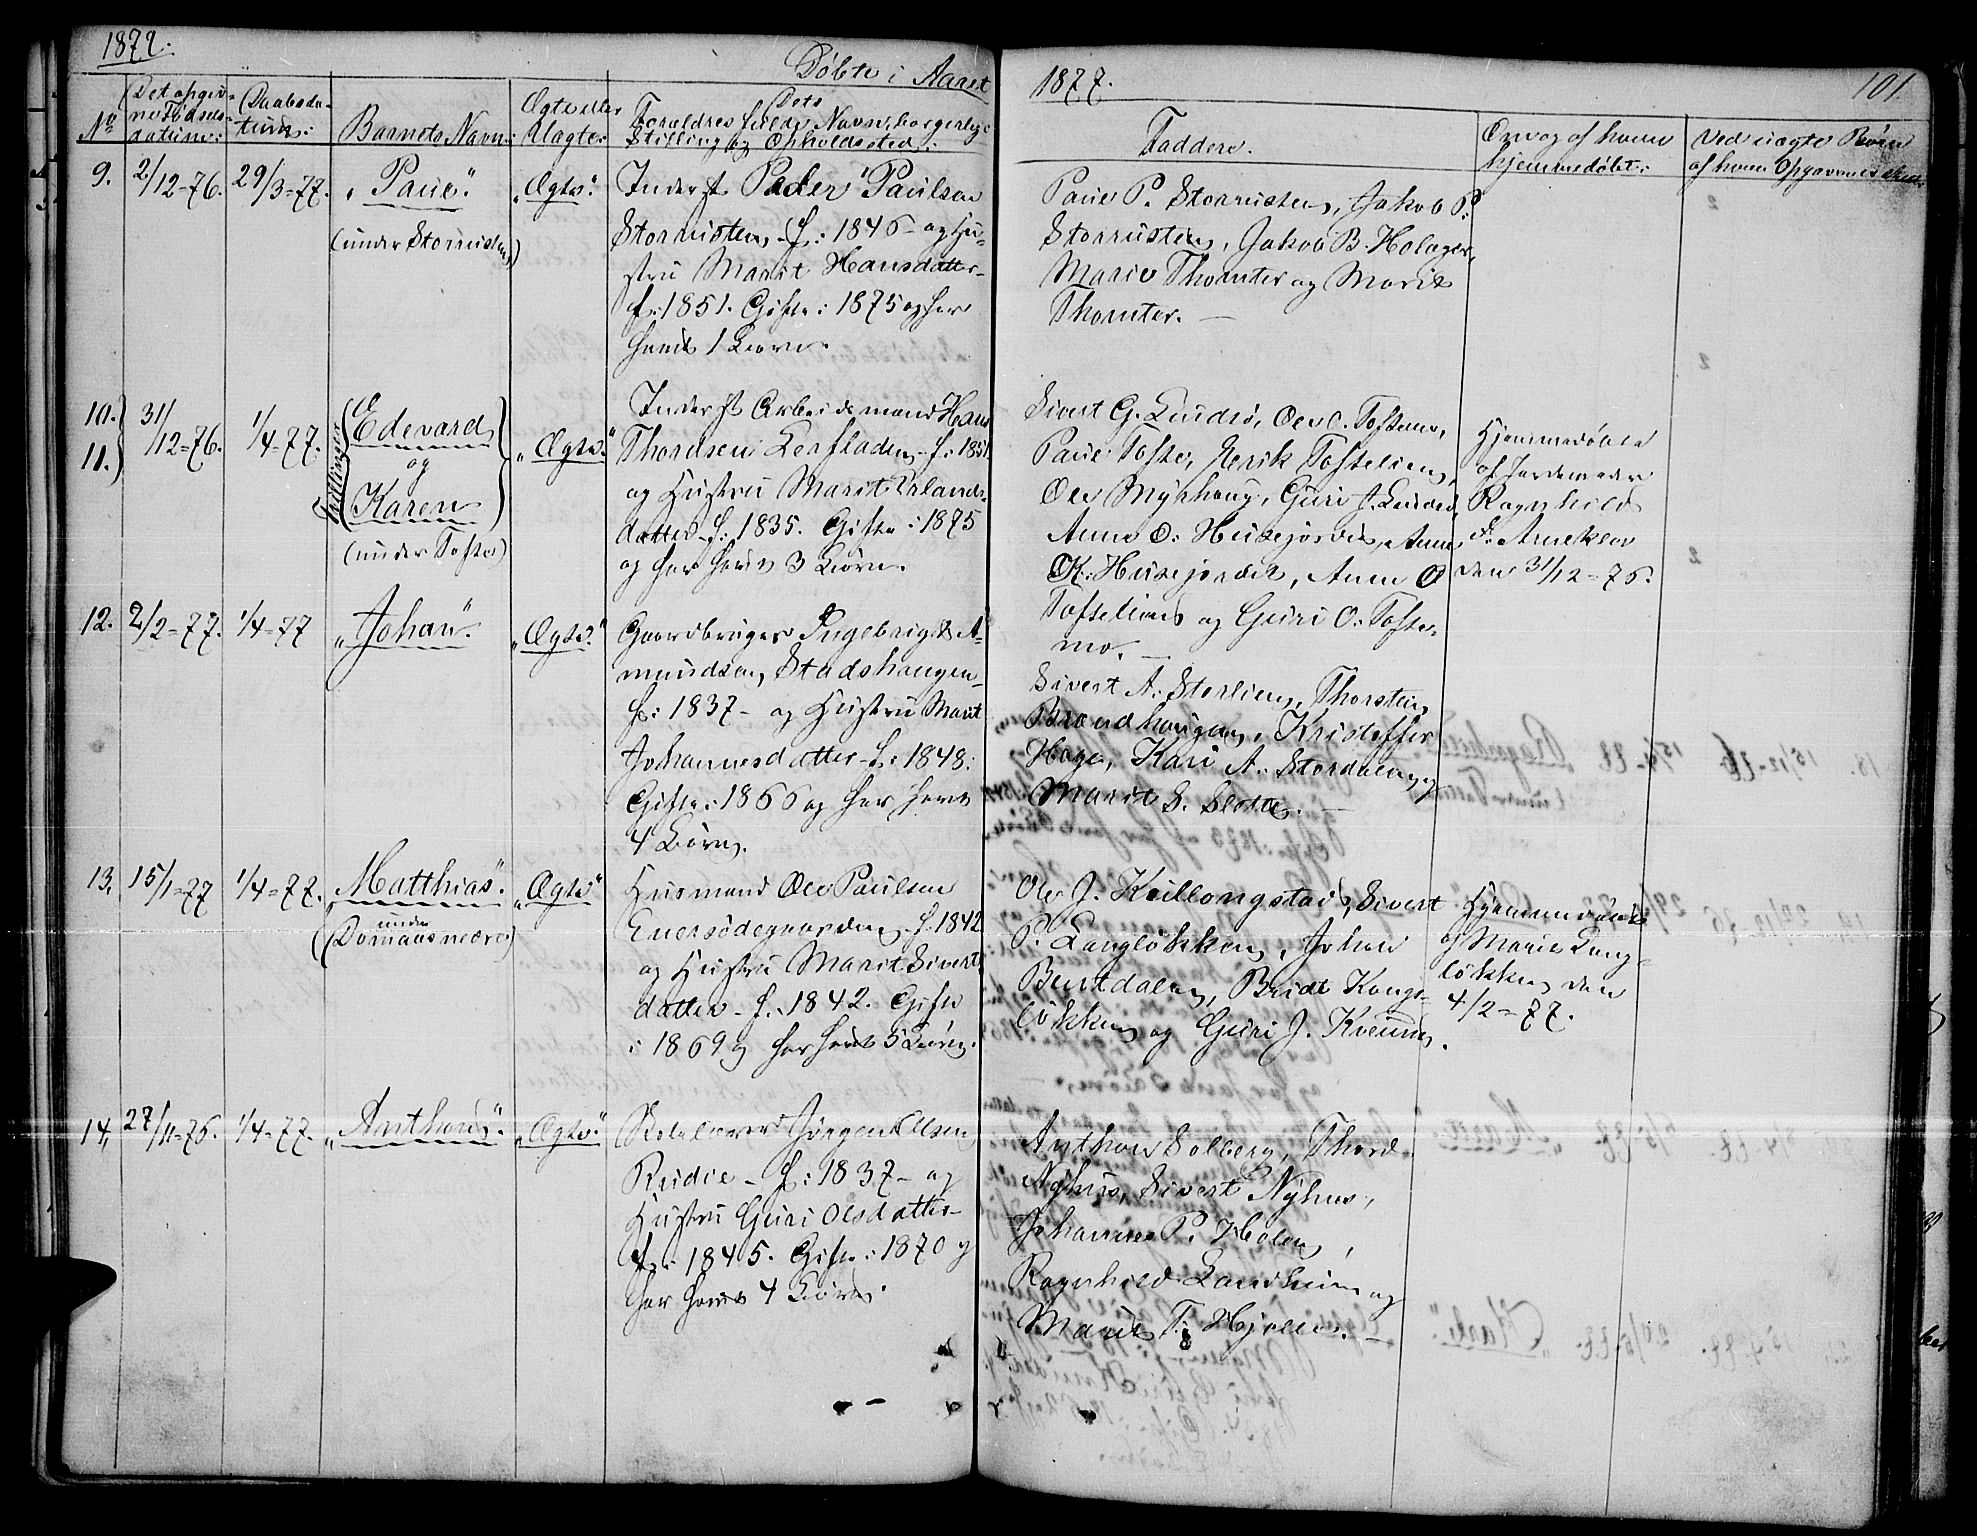 1877.
Døbte i Aaret
1877.
101.
No
Det opgiv-
ne Fødsels-
datum:
Daabsda-
tum:
Barnets Navn:
Ægte eller
Uægte:
Forældres fulde Navn, borgerlige
Stilling og Opholdssted:
Faddere.
Om og af hvem
hjemmedøbt:
Ved uægte Børn
af hvem Opgavernes
9.
2/12=76.
29/3=77.
"Paul".
(under Storrusten)
"Ægte".
Inderst Peder Paulsen
Storrusten, f: 1846 - og Hu-
stru Marit Hansdatter-
f: 1851. Gifte i 1875 og har
havt 1 Barn.
Paul P. Storrusten, Jakob P.
Storrusten, Jakob B. Holager,
Mari Thomter og Marit
Thomter. —
10.)
11.)
31/12=76.
1/4=77.
Tvillinger
Edevard
og
Karen
(under Tofte)
"Ægte."
Inderst Arbeidsmand Hans
Thordsen f: 1851
og Hustru Marit Erlands-
datter f: 1835. Gifte i 1875
og har havt 3 Børn.
Sivert G. Lindsø, Ole O. Toftemo,
Paul Tofte, Henrik Toftelien,
Ole Myrhaug, Guri J. Lindsø,
Anne O. Husejordet, Anne
K. Husejordet, Anne O
Toftelien og Guri O. Tofte-
mo. —
Hjemmedøbte
af Jordemoder
Ragnhild
Arneklev
den 31/12=76.
12.
2/2=77.
1/4=77
"Johan".
"Ægte."
Gaardbruger Ingebrigt A-
mundsen Stadshaugen-
f: 1837 - og Hustru Marit
Johannesdatter - f: 1848.
Gifte i 1866 og har havt
4 Børn.
Sivert A. Storlien, Thorstein
Brændhaugen, Kristoffer
Hage, Kari A. Stordalen, og
Marit S. Slette.
13.
15/1=77
1/4=77.
"Matthias".
(under
Domaasnæren)
"Ægte"
Husmand Ole Paulsen
Enersødegaarden - f. 1842
og Hustru Marit Siverts-
datter - f. 1842. Gifte
i 1869 og har havt 5 Børn.
Ole J. Killongstad, Sivert
P. Langløkken, Johan
Bentdalen, Bridt Konge-
løkken og Guri J. .
Hjemmedøbt
af Marie Lang-
løkken den
4/2=77.
14.
27/11=76.
1/4=77.
"Anthon".
"Ægte."
Skolelærer Jørgen Olsen
Rudie - f: 1837 - og
Hustru Guri Olsdatter-
f: 1845. Gifte i 1870 og
har havt 4 Børn.
Anthon Solberg, Thord
Nyhus, Sivert Nyhus,
Johannes P. Holen,
Ragnhild Landheim og
Marit T. Hjelle. —